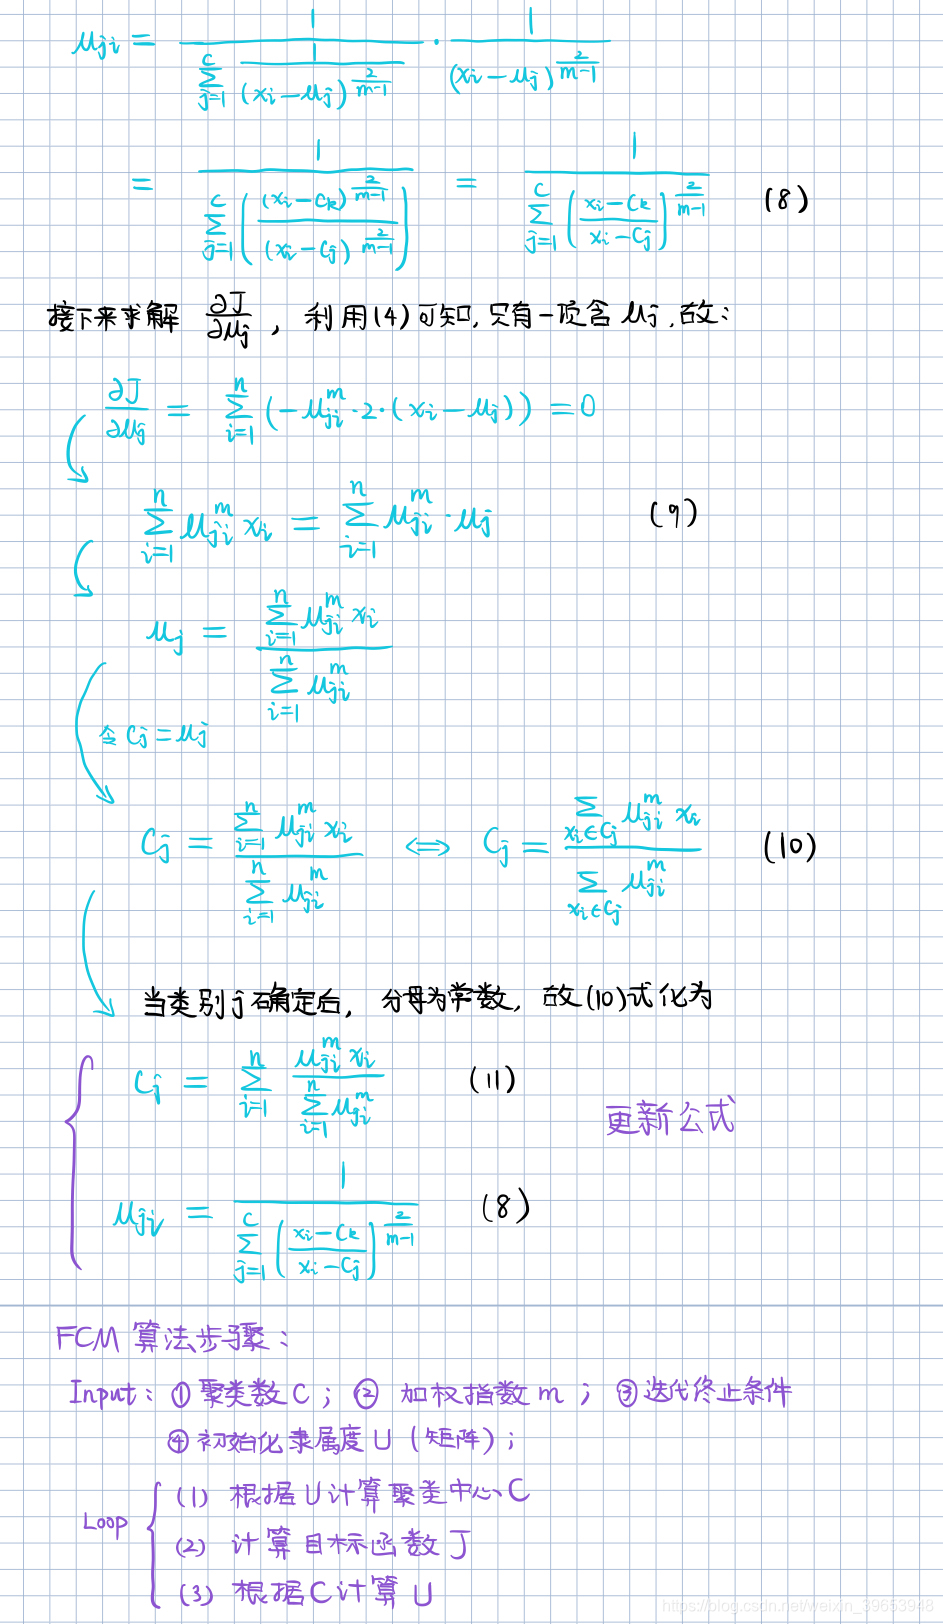 μji = 1 / ( Σ_{j=1}^{C} 1 / (xi−μj)^{2/(m−1)} ) · 1 / (xi−μj)^{2/(m−1)}
= 1 / ( Σ_{j=1}^{C} ( (xi−Ck)^{2/(m−1)} / (xi−Cj)^{2/(m−1)} ) ) = 1 / ( Σ_{j=1}^{C} ( (xi−Ck) / (xi−Cj) )^{2/(m−1)} ) (8)
接下来求解 ∂J/∂μj , 利用(4)可知,只有一项含μj,故:
∂J/∂μj = Σ_{i=1}^{n} (−μji^m · 2 · (xi−μj)) = 0
Σ_{i=1}^{n} μji^m xi = Σ_{i=1}^{n} μji^m · μj (9)
μj = Σ_{i=1}^{n} μji^m xi / Σ_{i=1}^{n} μji^m
令 Cj = μj
Cj = Σ_{i=1}^{n} μji^m xi / Σ_{i=1}^{n} μji^m ⟺ Cj = Σ_{xi∈Cj} μji^m xi / Σ_{xi∈Cj} μji^m (10)
当类别j确定后, 分母为常数, 故(10)式化为
Cj = Σ_{i=1}^{n} μji^m xi / Σ_{i=1}^{n} μji^m (11)
更新公式
μji = 1 / ( Σ_{j=1}^{C} ( (xi−Ck) / (xi−Cj) )^{2/(m−1)} ) (8)
FCM 算法步骤:
Input: ① 聚类数 C ; ② 加权指数 m ; ③ 迭代终止条件
④ 初始化隶属度 U (矩阵);
Loop
(1) 根据U计算聚类中心C
(2) 计算目标函数J
(3) 根据C计算U
https://blog.csdn.net/weixin_39653948